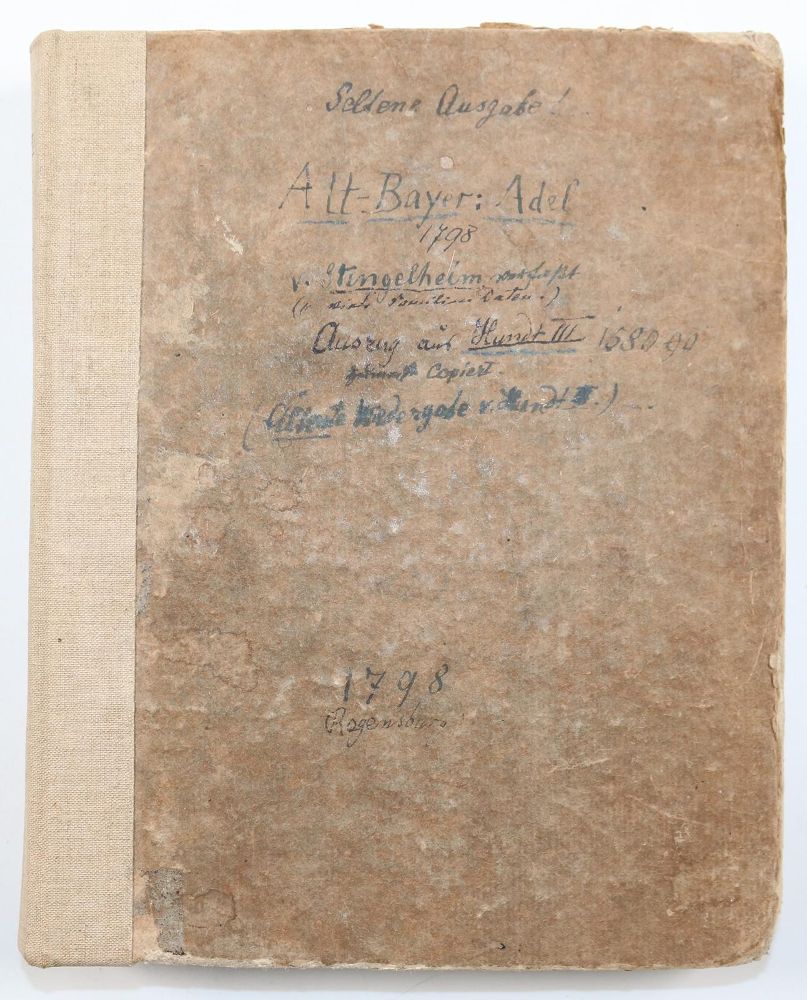 Seltene Ausgabe!
Alt-Bayer: Adel
1798
v. Stingelheim verfaßt
Daten.)
Auszug aus Hundt III 1680 90
Copiert.
(Älteste Wiedergabe v. Hundt III.)
1798
Regensburg